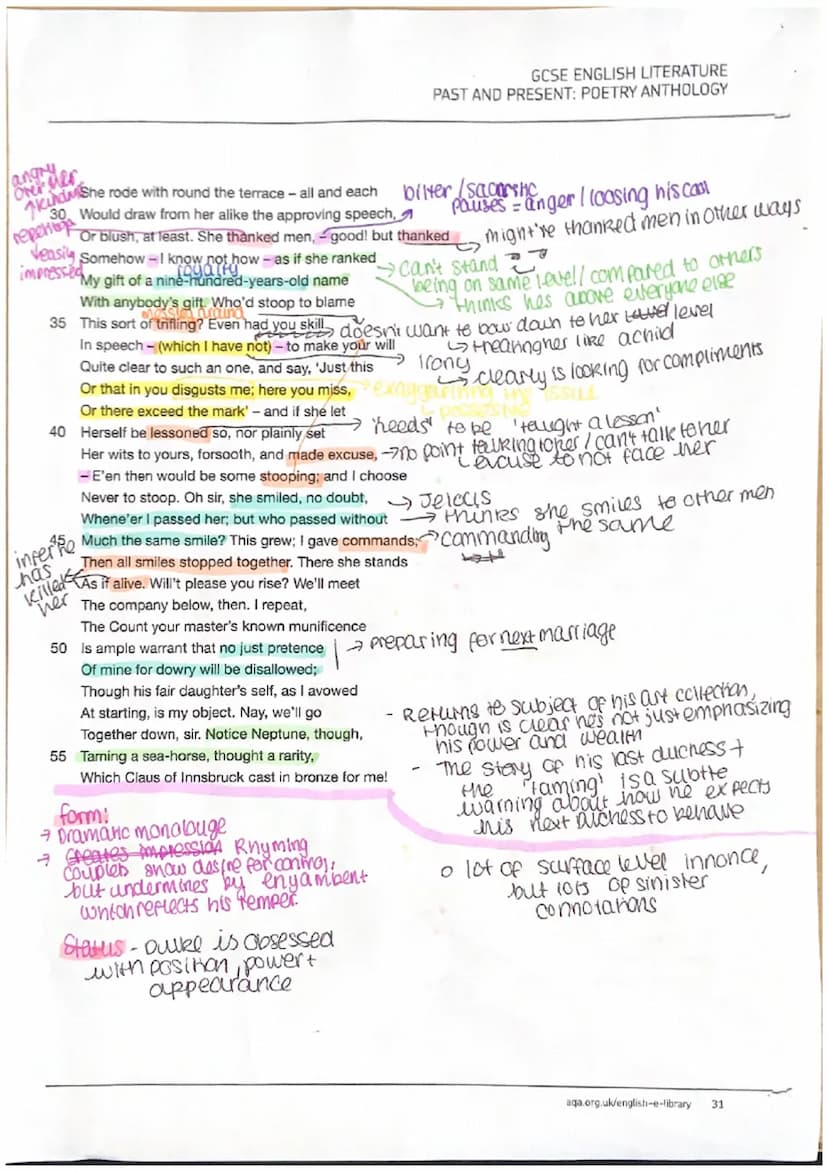 GCSE ENGLISH LITERATURE
PAST AND PRESENT: POETRY ANTHOLOGY
angry
over her
kindness
repentage
easily
impressed
She rode with round the terrace – all and each
30 Would draw from her alike the approving speech,
Or blush, at least. She thanked men, – good! but thanked
Somehow – I know not how – as if she ranked
royalty
My gift of a nine-hundred-years-old name
With anybody's gift. Who'd stoop to blame
messing around
35 This sort of trifling? Even had you skill
In speech – (which I have not) – to make your will
Quite clear to such an one, and say, 'Just this
Or that in you disgusts me; here you miss,
Or there exceed the mark' – and if she let
40 Herself be lessoned so, nor plainly set
Her wits to yours, forsooth, and made excuse,
– E'en then would be some stooping; and I choose
Never to stoop. Oh sir, she smiled, no doubt,
Whene'er I passed her; but who passed without
45 Much the same smile? This grew; I gave commands;
Then all smiles stopped together. There she stands
As if alive. Will't please you rise? We'll meet
The company below, then. I repeat,
The Count your master's known munificence
50 Is ample warrant that no just pretence
Of mine for dowry will be disallowed;
Though his fair daughter's self, as I avowed
At starting, is my object. Nay, we'll go
Together down, sir. Notice Neptune, though,
55 Taming a sea-horse, thought a rarity,
Which Claus of Innsbruck cast in bronze for me!
infer he
has
killed
her
bitter / sacarstic
pauses = anger / loosing his cool
might've thanked men in other ways
can't stand
being on same level / compared to others
thinks hes above everyone else
doesn't want to bow down to her level level
treating her like a child
Irony
clearly is looking for compliments
exaggerating the issue
possessive
'needs' to be 'taught a lesson'
no point talking to her / can't talk to her
excuse to not face her
Jelous
thinks she smiles to other men
the same
commanding
preparing for next marriage
- Returns to subject of his art collection,
though is clear hes not just emphasizing
his power and wealth
- The story of his last duchess +
the 'taming' is a subtle
warning about how he expects
his next duchess to behave
form:
→ Dramatic monolouge
→ Creates impression Rhyming
couplets show desire for control,
but undermines by enjambent
which reflects his temper.
Status - Duke is obsessed
with position, power +
appearance
o lot of surface level innonce,
but lots of sinister
connotations
aqa.org.uk/english-e-library 31